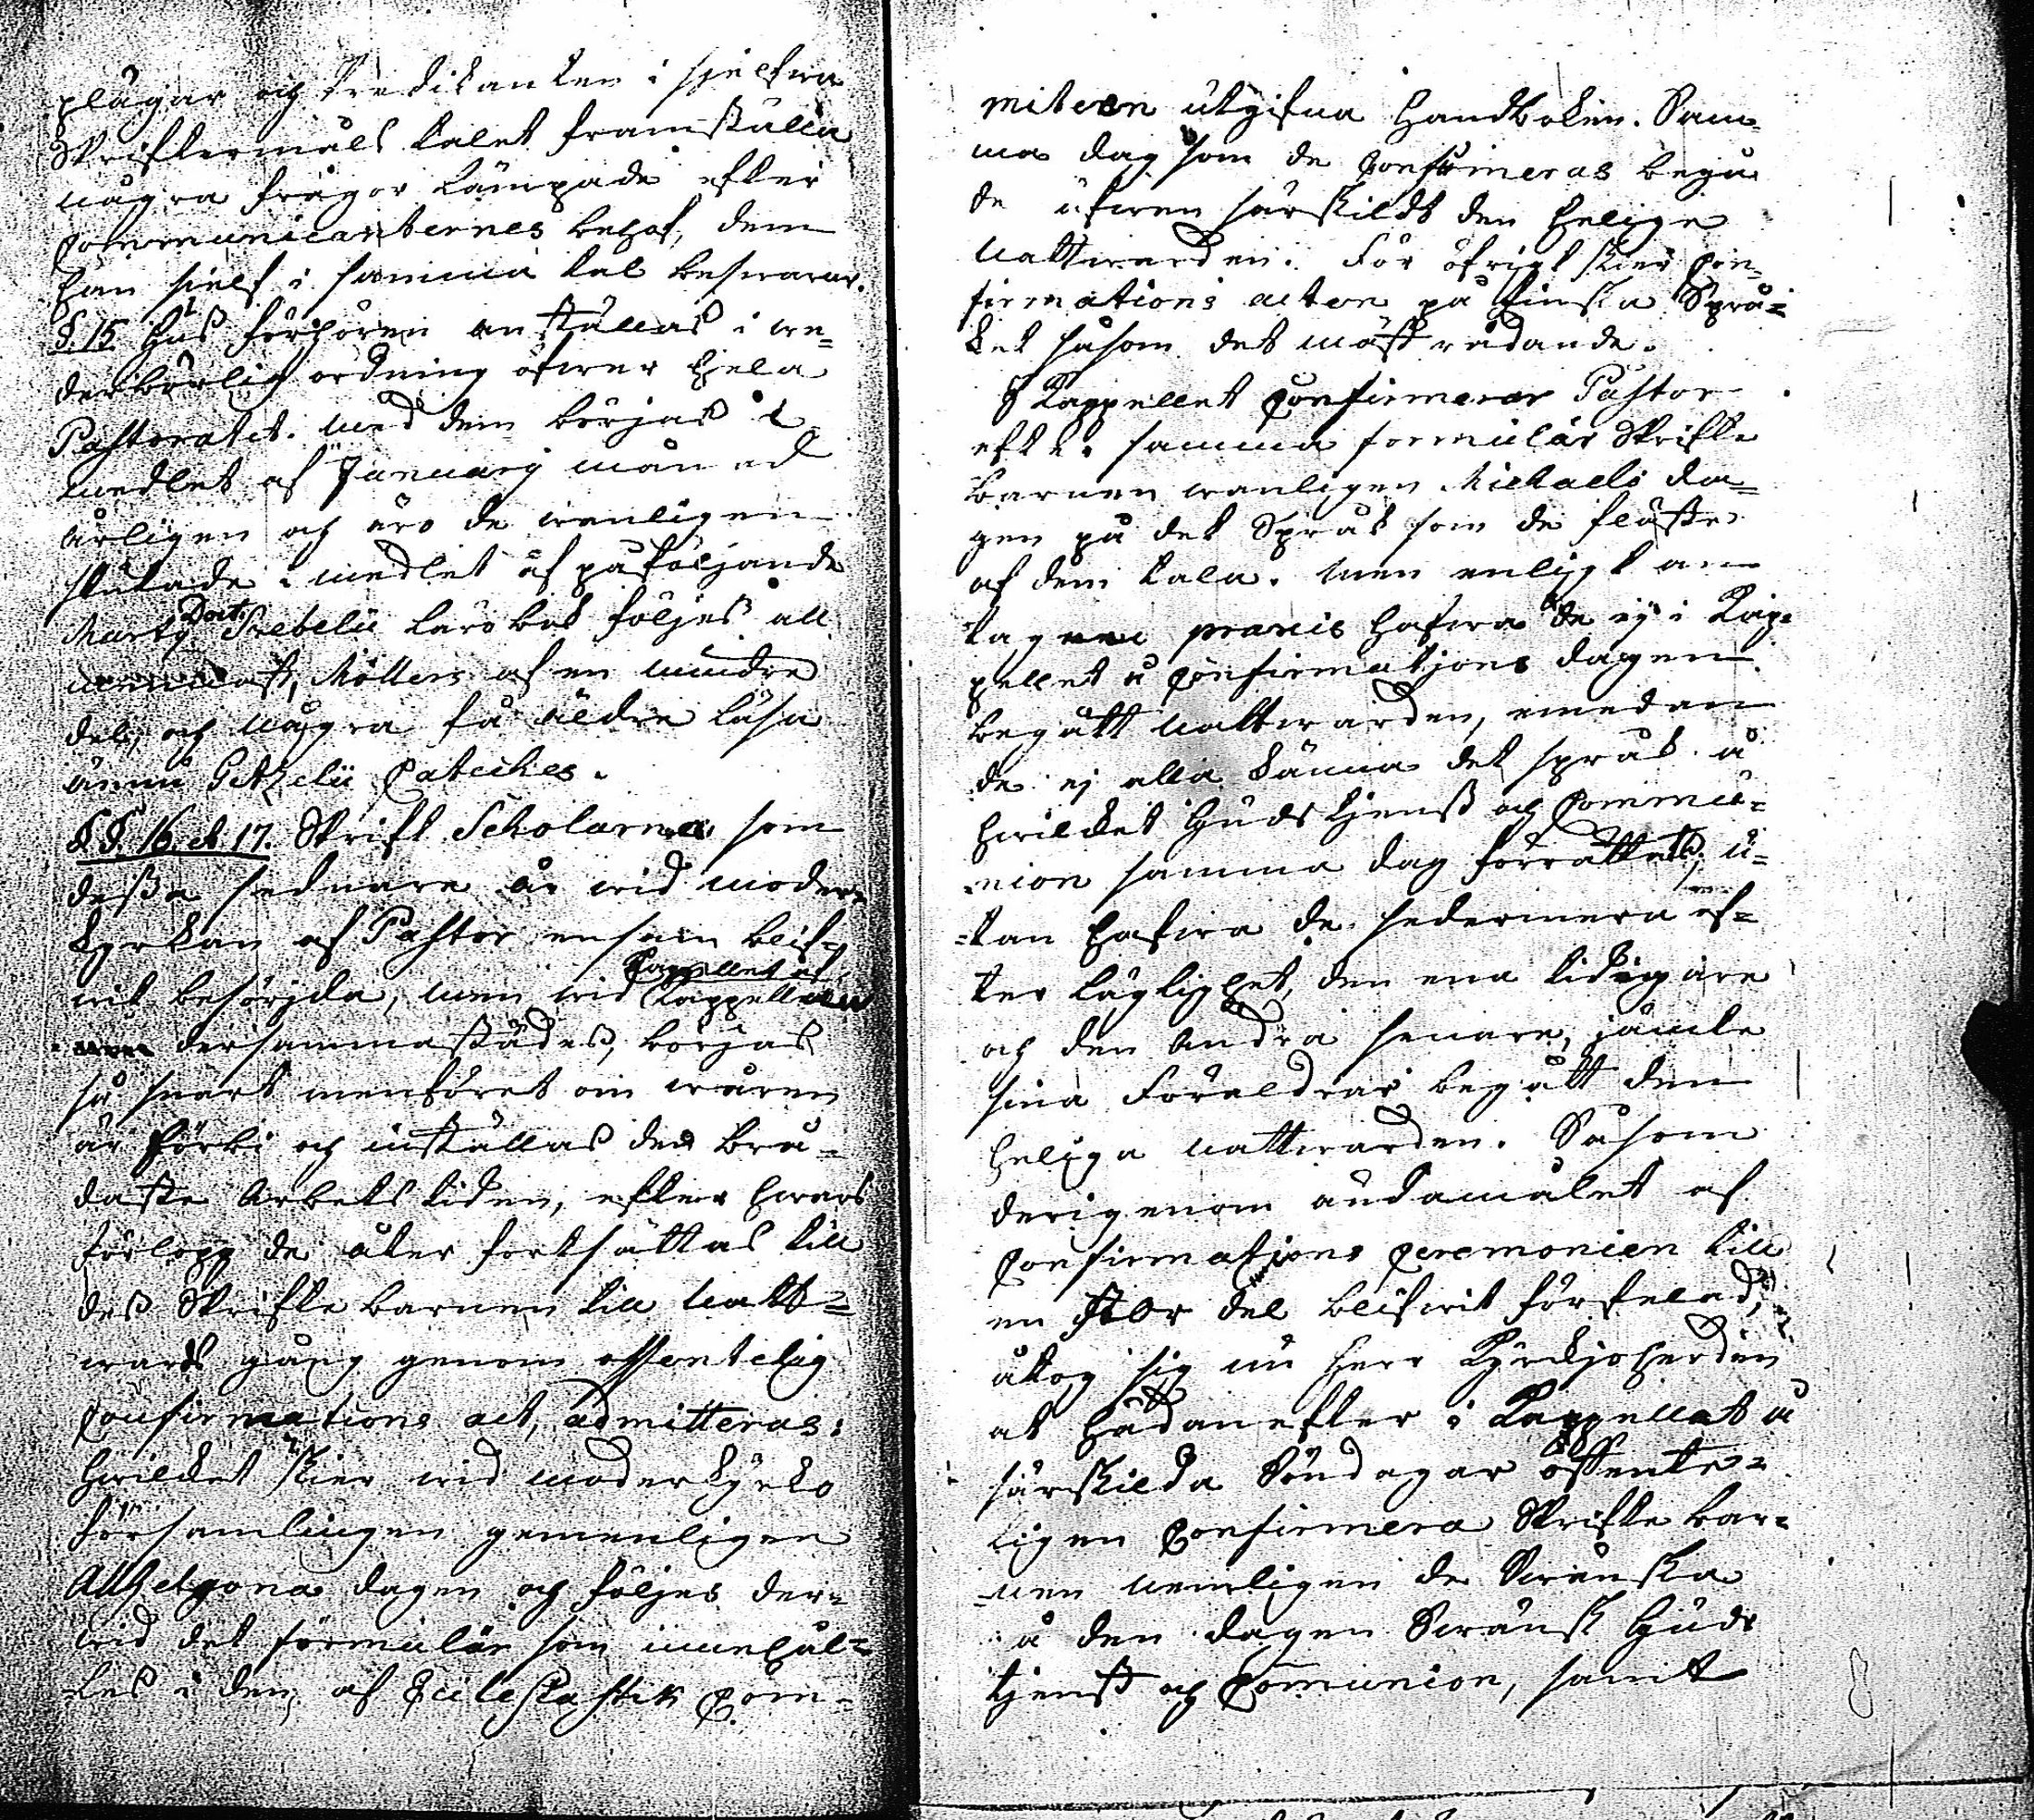 plägar och Predikanten i sjelfwa
Skriftermåls talet framställa
några frågor lämpade efter
Communicanternes behof, dem
han sielf i samma tal beswarar.
§. 15. Hus förhören anställas i we-
derbörlig ordning öfwer hela
Pastoratet. Med dem börjas i
medlet af January månad
årligen och äro de wanligen
slutade i medlet af påföljande
Marty Doct Svebelii läro bok följes all
mennast, Möllers af en mindre
del, och några få äldre läsa
ännu Getzelii Cateches.
§§. 16. et 17. Skrift Scholarna som
dessa sednare år wid moder-
kyrkan af Pastor ensam blif-
wit besörjda, men wid Kappellet af Kappellanen
dersammastädes, börjas
så snart menföret om wåren
är förbi och inställas den brå-
daste Arbets tiden, efter hwars
förlopp de åter fortsättas till
dess Skrifte barnen till Natt-
wards gång genom offentelig
Confirmations act, admitteras:
hwilket skier wid moderkyrko
församlingen gemenligen
Allhelgona dagen och följes der-
wid det formulär som innehål-
les i den af Ecclesiastik Com-
miteen utgifna Handboken. Sam-
ma dag som de Confirmeras begå
de äfwen särskildt den helige
Nattwarden. För öfrigt skier Con-
firmations acten på finska Språ-
ket såsom det mäst rådande.
I Kappellet Confirmerar Pastor
efter samma formulär Skrifte
barnen wanligen Michaeli da-
gen på det Språk som de fläste
af dem tala. Men enligt an-
tagen praxis hafwa de ej i Kap-
pellet å Confirmations dagen
begått nattwarden, emedan
de ej alla känna det språk å
hwilket Gudstjenst och Commu-
nion samma dag förrättats, u-
tan hafwa de sedermera ef-
ter läglighet, den ena tidigare
och den Andra senare, jämte
sina Föräldrar begått den
heliga nattwarden. Såsom
derigenom ändamålet af
Confirmations Ceremonien till
en stor del blifwit förfelad,
åtog sig nu Herr Kyrckjoherden
at hädanefter i Kappellet å
särskilda Söndagar offente-
ligen Confirmera Skrifte bar-
nen nemligen de Swenska
å den dagen Swänsk Guds
tjenst och Comunion, samt